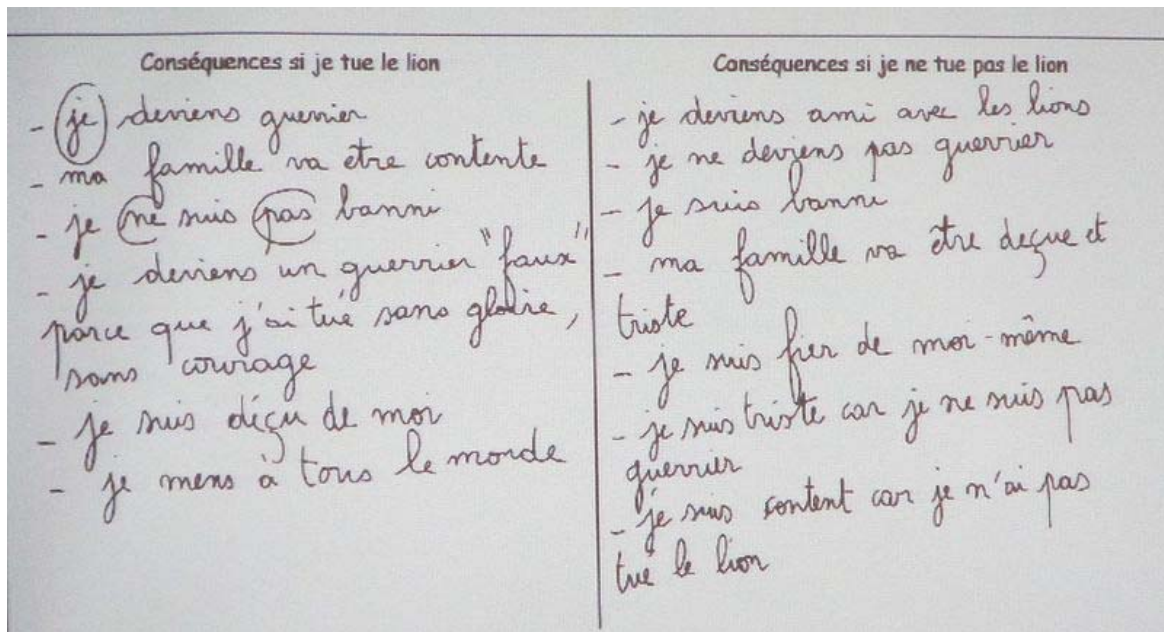 Conséquences si je tue le lion
- je deviens guerrier
- ma famille va être contente
- je ne suis pas banni
- je deviens un guerrier "faux"
parce que j'ai tué sans gloire,
sans courage
- je suis déçu de moi
- je mens à tous le monde
Conséquences si je ne tue pas le lion
- je deviens ami avec les lions
- je ne deviens pas guerrier
- je suis banni
- ma famille va être deçue et
triste
- je suis fier de moi-même
- je suis triste car je ne suis pas
guerrier
- je suis content car je n'ai pas
tué le lion